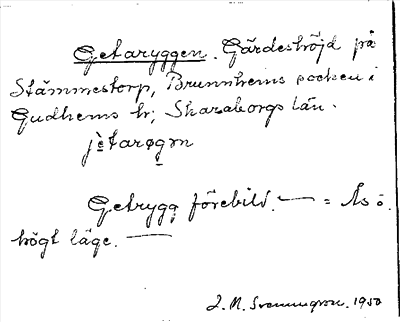 Getaryggen. Gärdeshöjd på
Stämmestorp, Brunnhems socken i
Gudhems hr, Skaraborgs län.
jètarøgən
Getrygg förebild. — = Ås o.
högt läge. —
1950